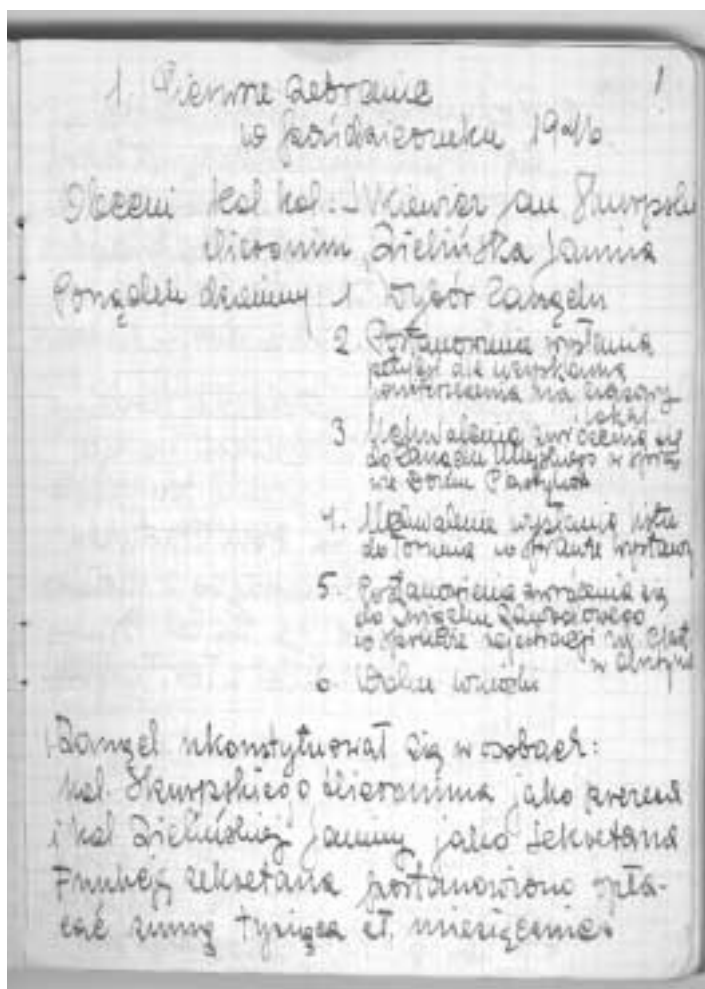 1
1. Pierwsze zebranie
w październiku 1946
Obecni kol kol: Ilkiewicz Jan Skurpski
Hieronim, Zielińska Janina
Porządek dzienny 1 Wybór Zarządu
2 Postanowienie wysłania
petycji dla uzyskania
pomieszczenia na
lokal
3 Uchwalenie zwrócenia się
do Zarządu Miejskiego w spra
wie Domu Plastyków
4. Uchwalenie wysłania listu
do Torunia w sprawie wystawy
5. Postanowienie zwrócenia się
do Związku Zawodowego
w sprawie rejestracji
w Olsztynie
6. Wolne wnioski
Zarząd ukonstytuował się w osobach:
kol. Skurpskiego Hieronima jako prezesa
i kol Zielińskiej Janiny jako sekretarza
Funkcję sekretarza postanowiono opła-
cać sumą tysiąca zł. miesięcznie.